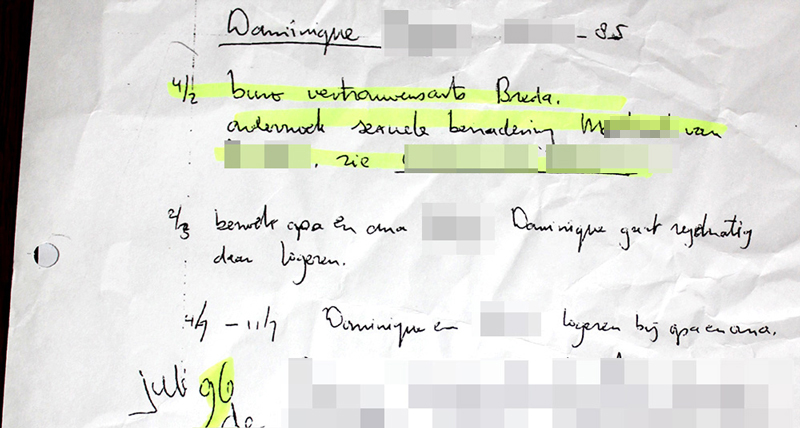 Dominique - 85
4/2 buro vertrouwensarts Breda.
onderzoek sexuele benadering M van
, zie
2/5 bezoek opa en oma Dominique gaat regelmatig
daar logeren.
4/7 - 11/7 Dominique en logeren bij opa en oma.
juli 96
de